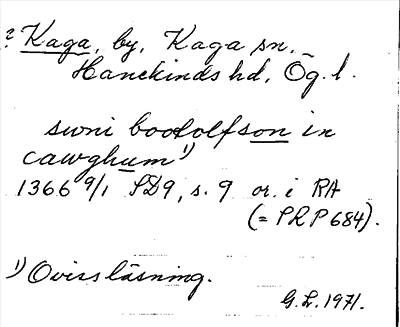 ? Kaga, by, Kaga sn.
Hanekinds hd, Ög. l.
swni bootolfson in
cawghum ¹)
1366 9/1 SD9, s. 9 or. i RA
(= PRP 684).
¹) Oviss läsning.
G. L. 1971.